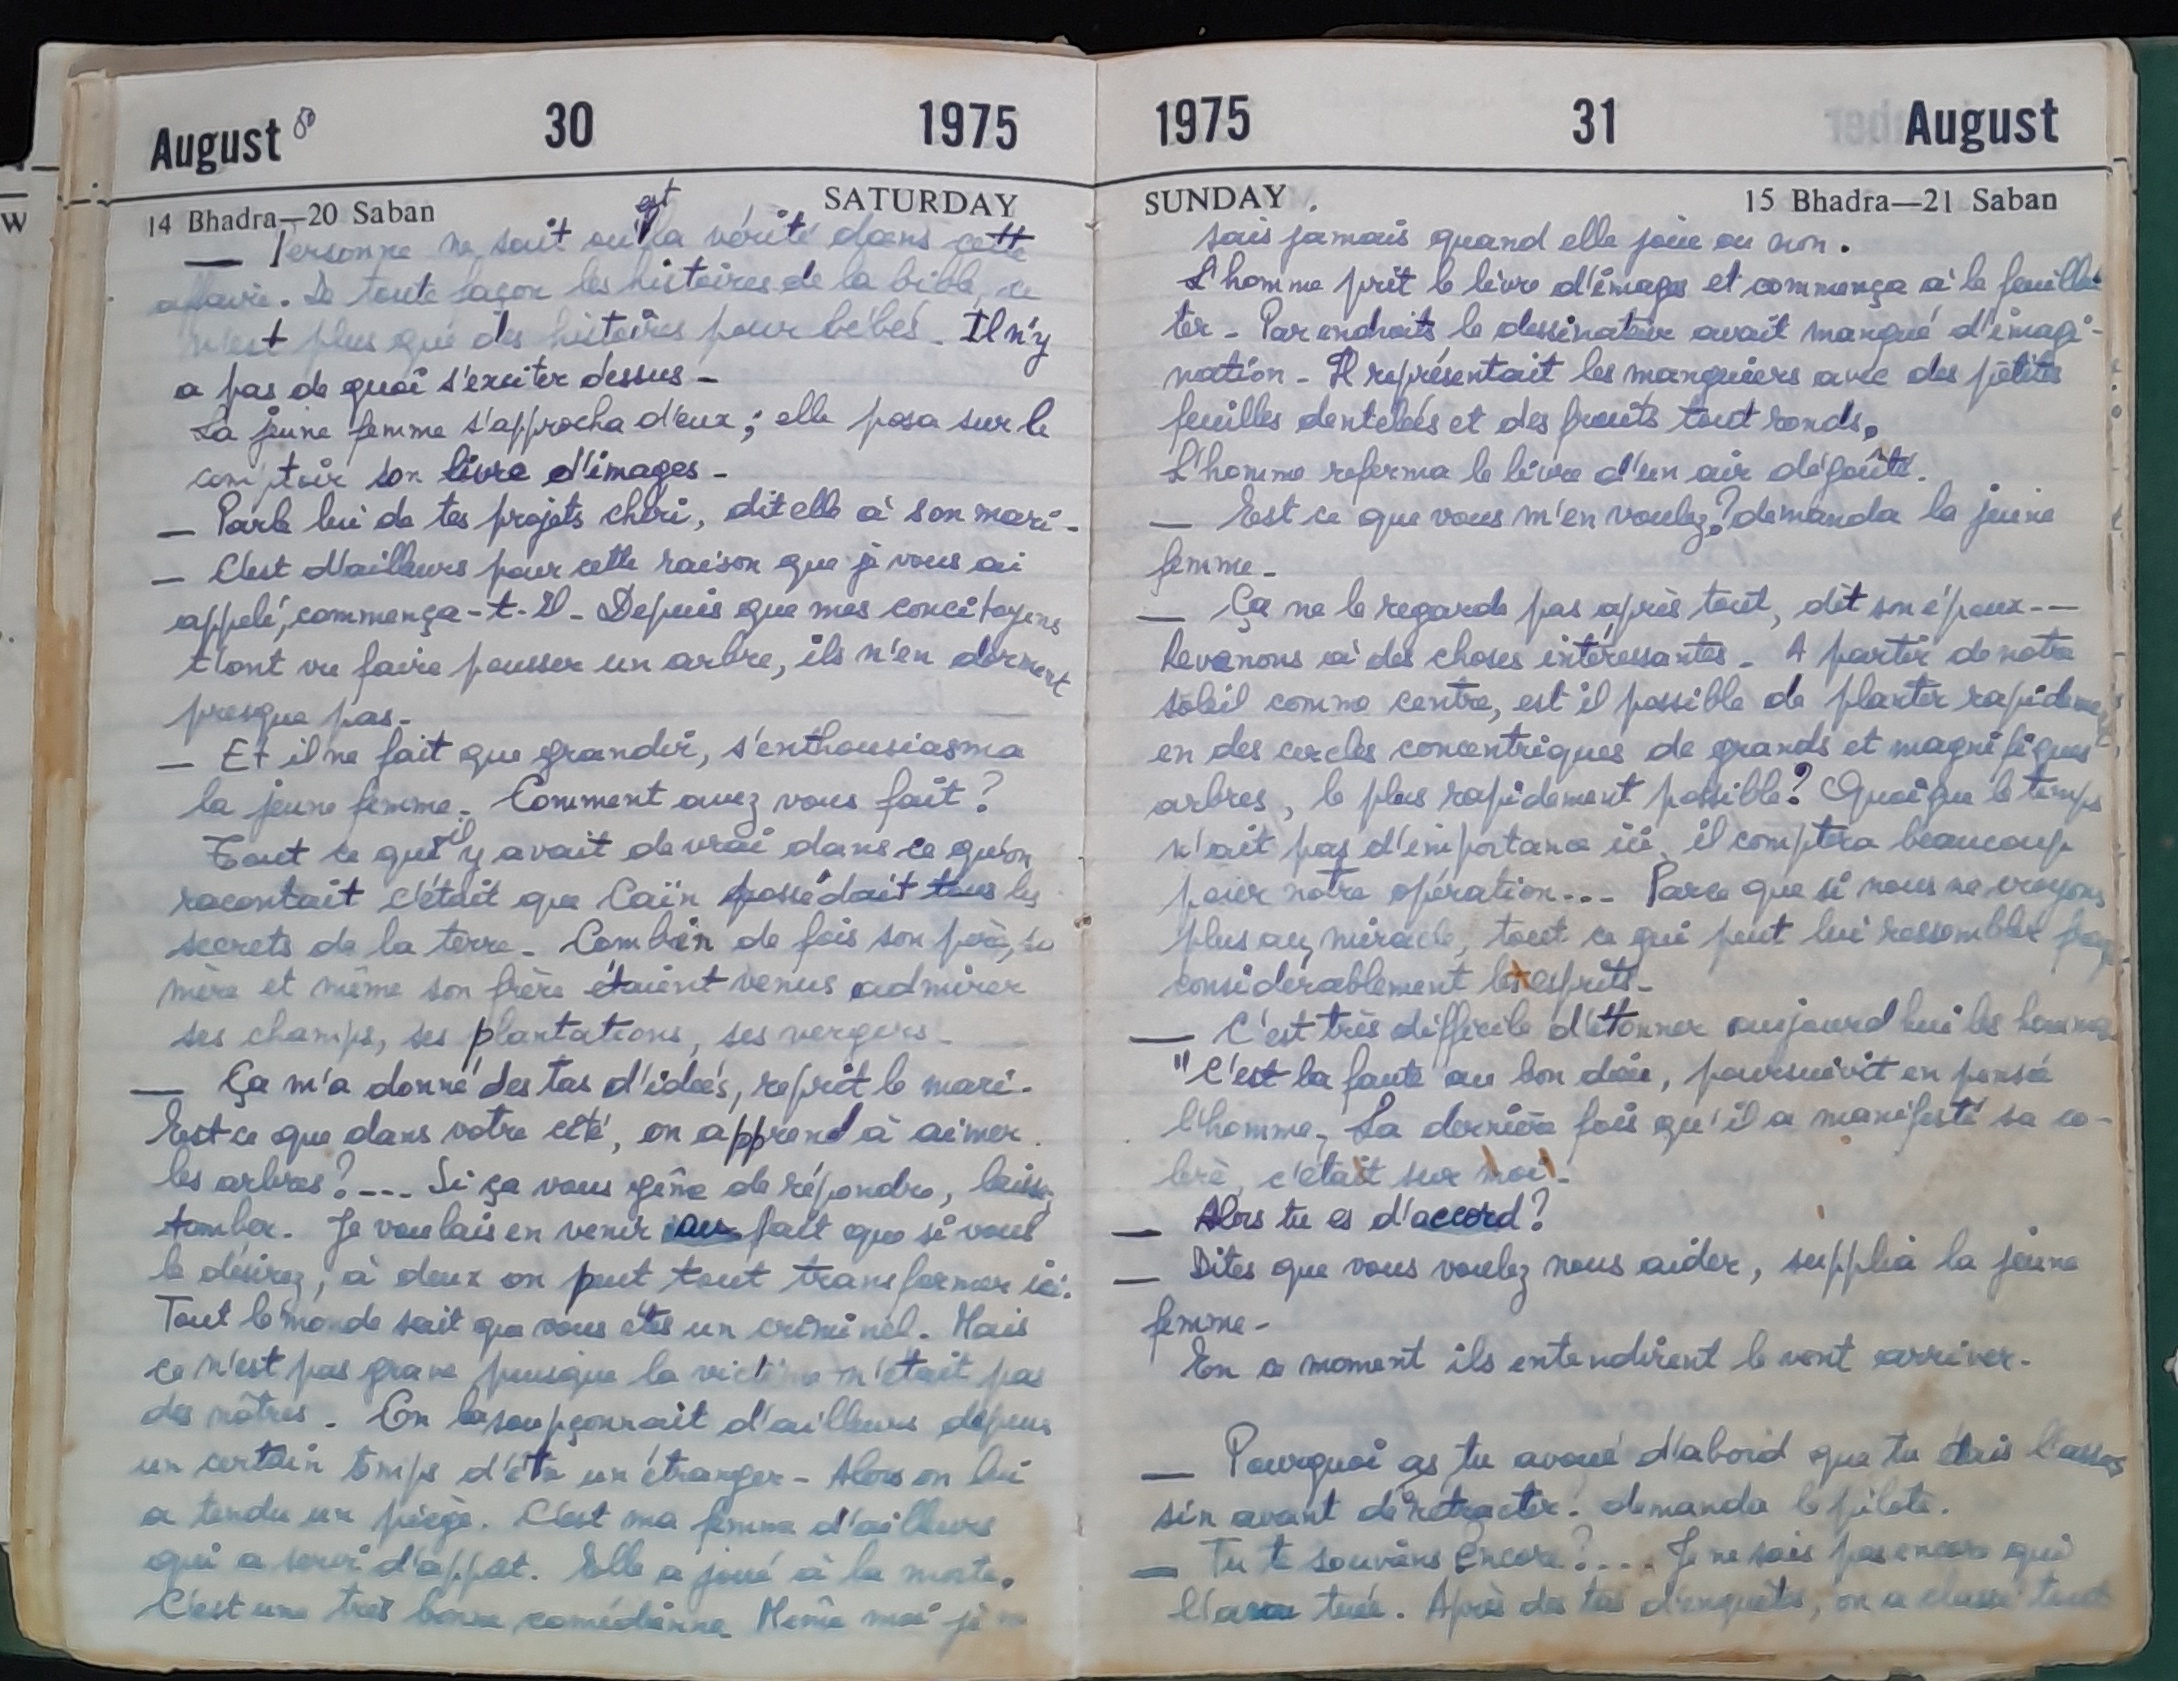 August 80 30 1975
14 Bhadra—20 Saban SATURDAY
— Personne ne sait où est la vérité dans cette
affaire. De toute façon les histoires de la bible, ce
n'est plus que des histoires pour bébés. Il n'y
a pas de quoi s'exciter dessus -
La jeune femme s'approcha d'eux ; elle posa sur le
comptoir son livre d'images -
— Parle lui de tes projets chéri, dit elle à son mari -
— C'est d'ailleurs pour cette raison que je vous ai
appelé, commença-t-il - Depuis que mes concitoyens
t'ont vu faire pousser un arbre, ils n'en dorment
presque pas -
— Et il ne fait que grandir, s'enthousiasma
la jeune femme. Comment avez vous fait ?
Tout ce qu'il y avait de vrai dans ce qu'on
racontait c'était que Caïn possédait tous les
secrets de la terre - Combien de fois son père, sa
mère et même son frère étaient venus admirer
ses champs, ses plantations, ses vergers -
— Ça m'a donné des tas d'idées, reprit le mari -
Est ce que dans votre cité, on apprend à aimer
les arbres ? --- Si ça vous gêne de répondre, laissez
tomber. Je voulais en venir au fait que si vous
le désirez, à deux on peut tout transformer ici.
Tout le monde sait que vous êtes un criminel. Mais
ce n'est pas grave puisque la victime n'était pas
des nôtres. On la soupçonnait d'ailleurs depuis
un certain temps d'être un étranger - Alors on lui
a tendu un piège. C'est ma femme d'ailleurs
qui a servi d'appat. Elle a joué à la morte.
C'est une très bonne comédienne Même moi je ne
1975 31 August
SUNDAY 15 Bhadra—21 Saban
sais jamais quand elle joue ou non.
L'homme prit le livre d'images et commença à le feuille
ter - Par endroits le dessinateur avait manqué d'imagi-
nation - Il représentait les manguiers avec des petites
feuilles dentelées et des fruits tout ronds.
L'homme referma le livre d'un air dégoûté.
— Est ce que vous m'en voulez ? demanda la jeune
femme -
— Ça ne le regarde pas après tout, dit son époux --
Revenons à des choses intéressantes - A partir de notre
soleil comme centre, est il possible de planter rapidement
en des cercles concentriques de grands et magnifiques
arbres, le plus rapidement possible ? Quoique le temps
n'ait pas d'importance ici, il comptera beaucoup
pour notre opération --- Parce que si nous ne croyons
plus au miracle, tout ce qui peut lui ressembler
considérablement les esprits -
— C'est très difficile d'étonner aujourd'hui les hommes
"C'est la faute au bon dieu, poursuivit en pensée
l'homme, La dernière fois qu'il a manifesté sa co-
lère, c'était sur moi.
— Alors tu es d'accord ?
— Dites que vous voulez nous aider, supplia la jeune
femme -
En ce moment ils entendirent le vent arriver -
— Pourquoi as tu avoué d'abord que tu étais l'assas
sin avant de rétracter. demanda le pilote.
— Tu te souviens encore ? ... Je ne sais pas encore qui
l'a tuée. Après des tas d'enquêtes, on a classé tout